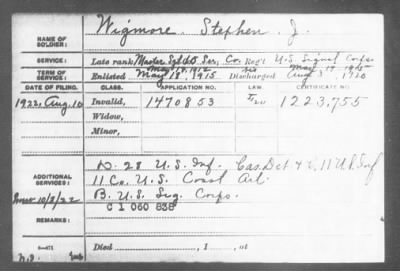 NAME OF SOLDIER: Wigmore, Stephen J.
SERVICE: Late rank Master Sgt Ser, Co. Reg't U.S. Signal Corps
May 18, 1912 May 17, 1915
TERM OF SERVICE: Enlisted May 18, 1915 Discharged Aug 3, 1920
DATE OF FILING. CLASS. APPLICATION NO. LAW. CERTIFICATE NO.
1922, Aug. 10 Invalid, 1470853 1223,755
Widow,
Minor,
D. 28 U.S. Inf. Cas. Det 4 11 U.S. Inf
ADDITIONAL SERVICES: 11 Co. U.S. Coast Art.
10/8/22 B. U.S. Sig. Corps.
C 1 060 838
REMARKS:
Died , 1 , at